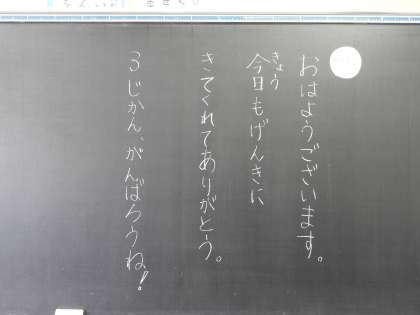 おはようございます。
きょう
今日もげんきに
きてくれてありがとう。
3じかん、がんばろうね!